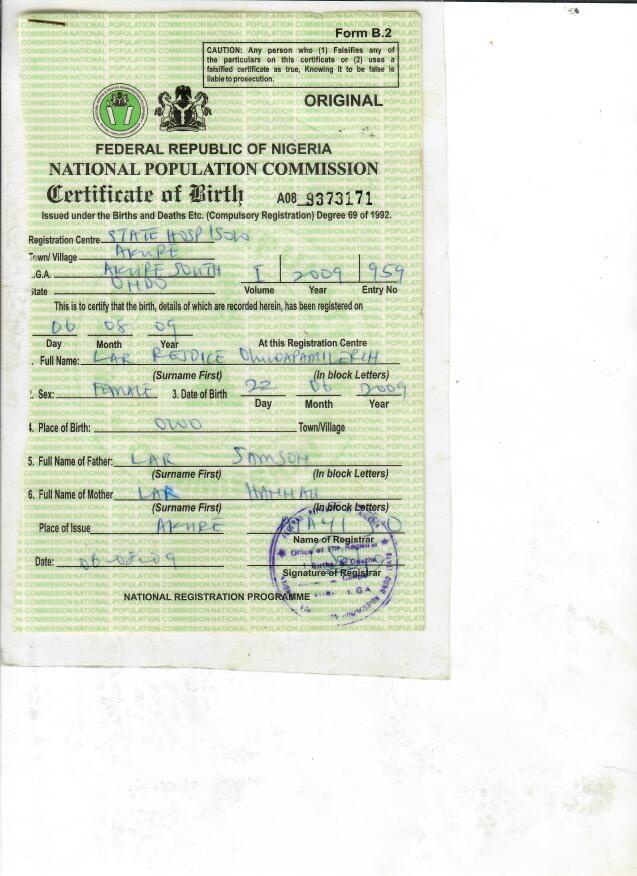 Form B.2
CAUTION: Any person who (1) Falsifies any of
the particulars on this certificate or (2) uses a
falsified certificate as true, Knowing it to be false is
liable to prosecution.
ORIGINAL
FEDERAL REPUBLIC OF NIGERIA
NATIONAL POPULATION COMMISSION
Certificate of Birth A08 9373171
Issued under the Births and Deaths Etc. (Compulsory Registration) Degree 69 of 1992.
Registration Centre STATE HOSP
Town/ Village AKURE
L.G.A. AKURE SOUTH I 2009 959
State ONDO Volume Year Entry No
This is to certify that the birth, details of which are recorded herein, has been registered on
06 08 09
Day Month Year At this Registration Centre
. Full Name: LAR REJOICE
(Surname First) (In block Letters)
2. Sex: FEMALE 3. Date of Birth 22 06 2009
Day Month Year
4. Place of Birth: OWO Town/Village
5. Full Name of Father: LAR SAMSON
(Surname First) (In block Letters)
6. Full Name of Mother LAR HANNAH
(Surname First) (In block Letters)
Place of Issue AKURE
Name of Registrar
Office of the Registrar
Births & Deaths
Date: 06-08-09
Signature of Registrar
L.G.A
NATIONAL REGISTRATION PROGRAMME